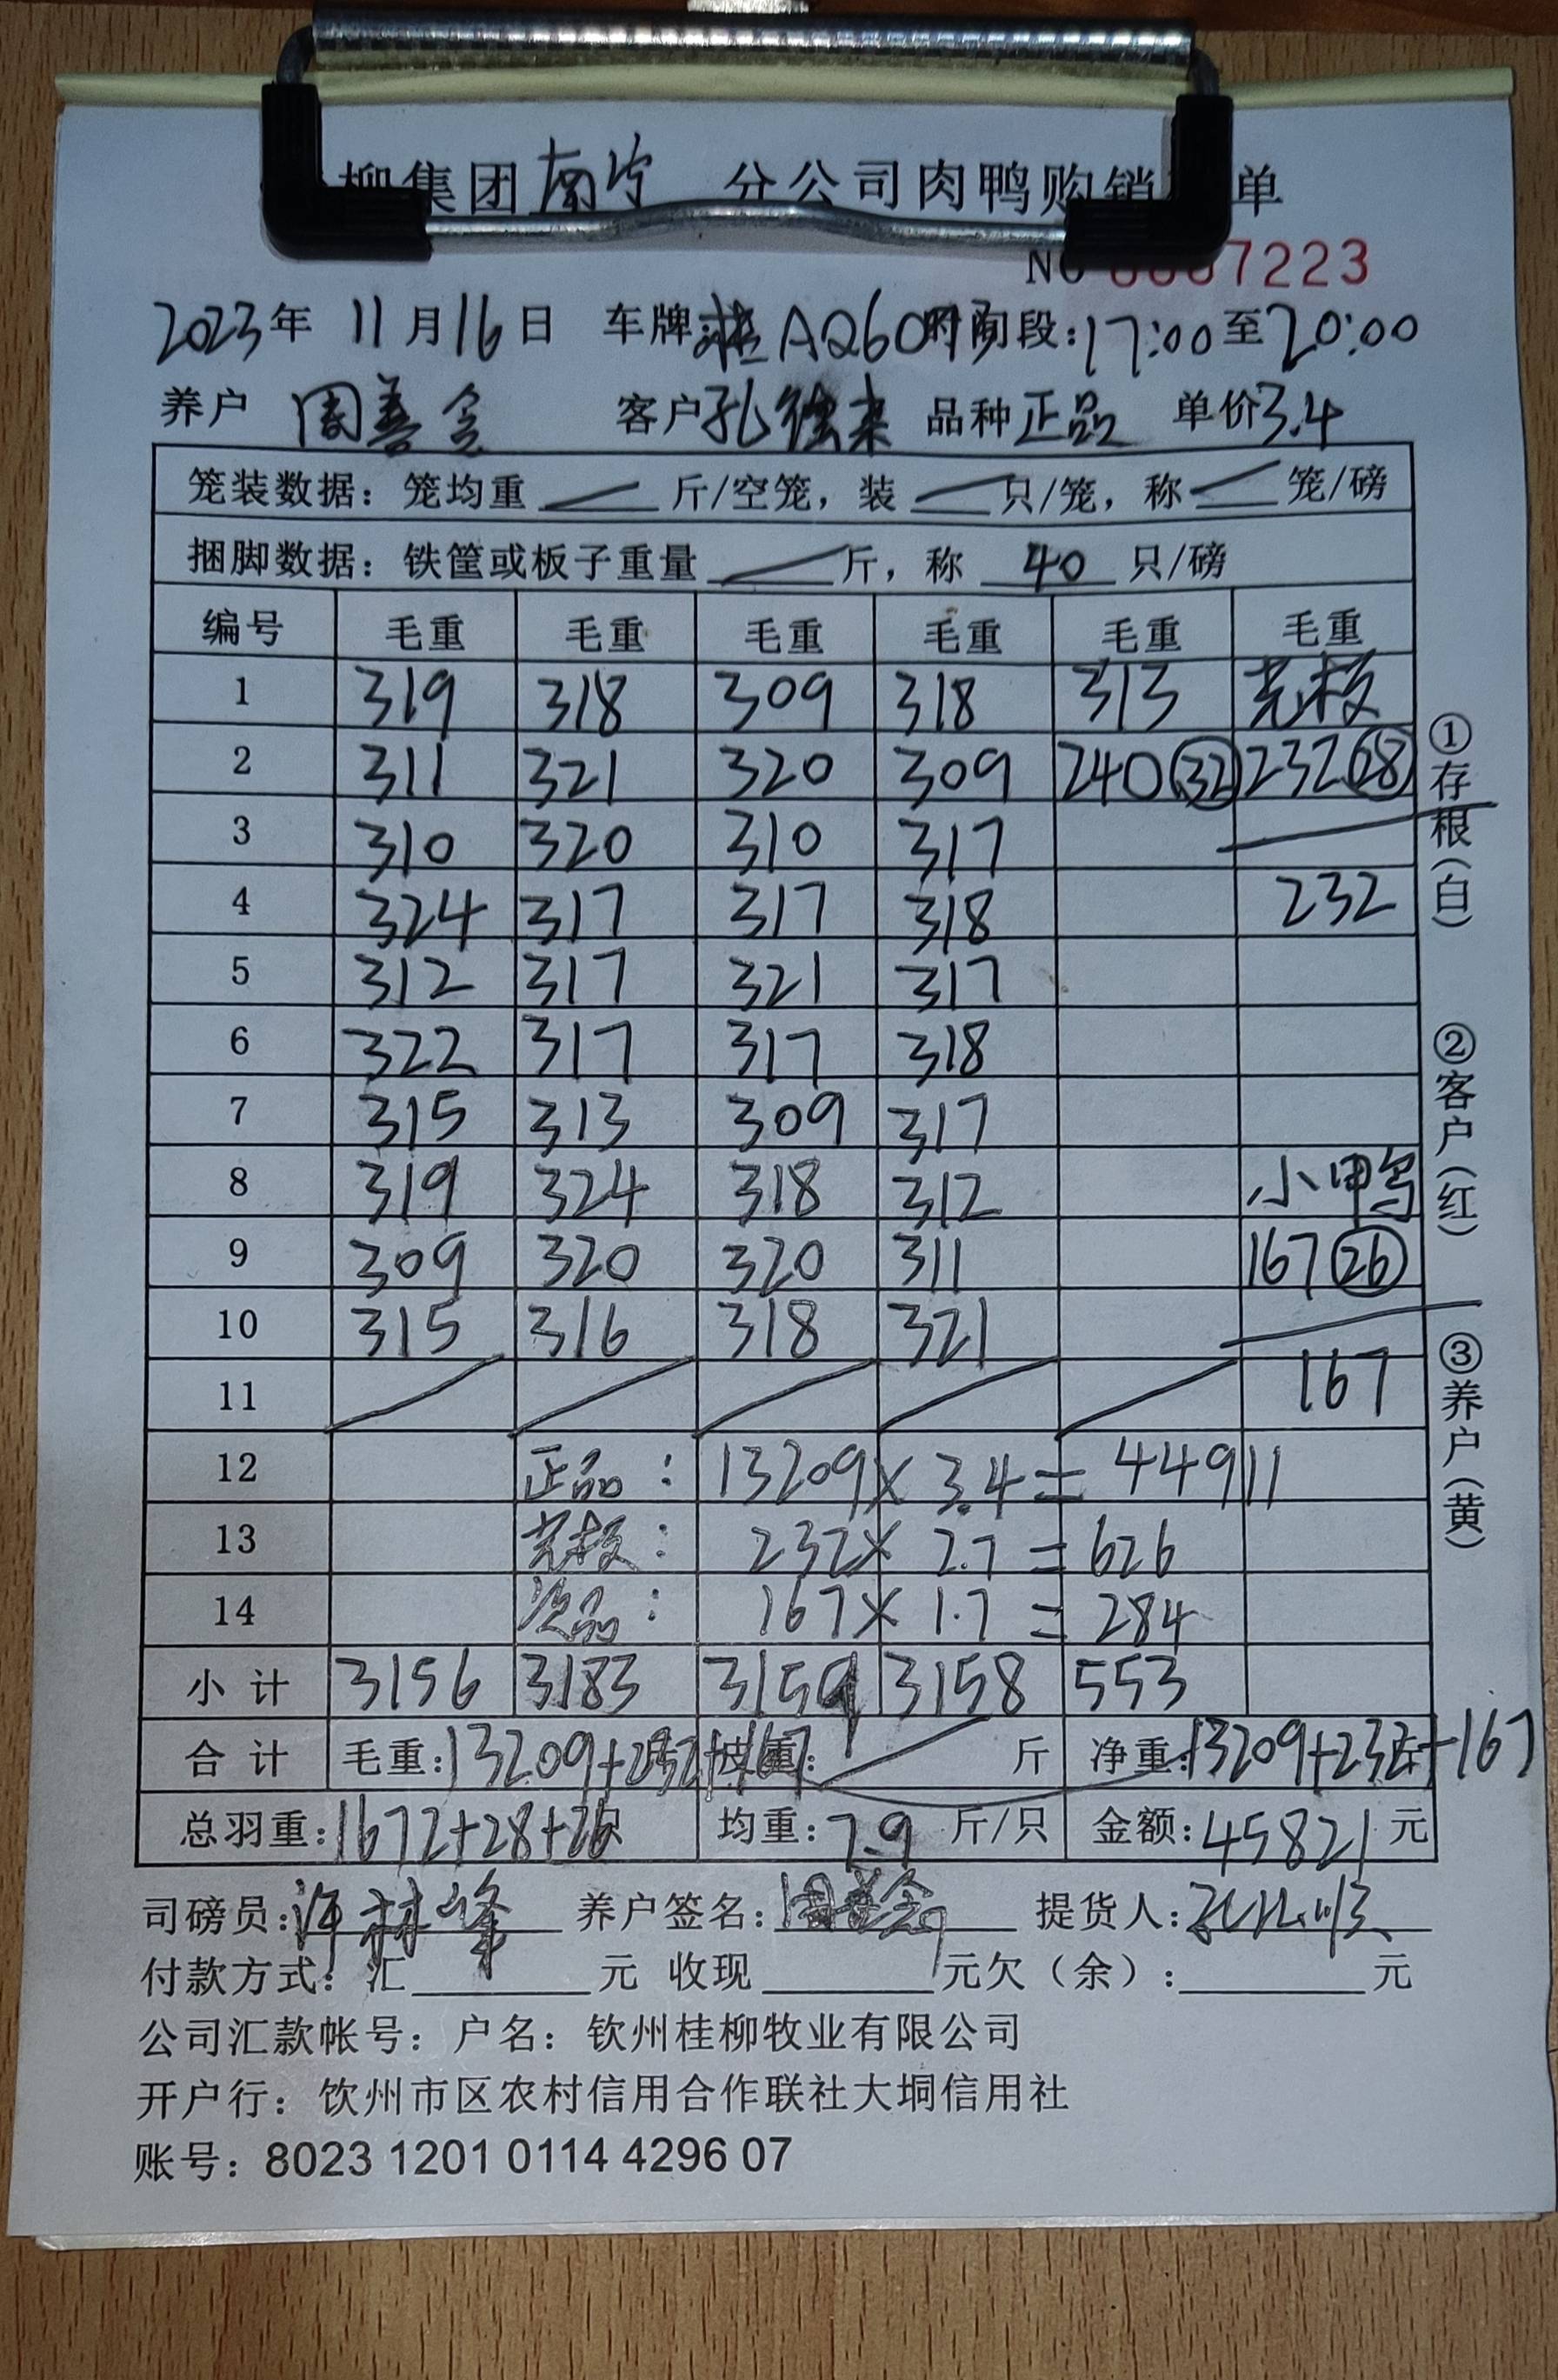 柳集团南宁 分公司肉鸭购销 单
NO 7223
2023年 11月16日 车牌:桂AQ60 时间段:17:00至20:00
养户 周善 客户 孔 来 品种 正品 单价3.4
笼装数据：笼均重 斤/空笼，装 只/笼，称 笼/磅
捆脚数据：铁筐或板子重量 斤，称 40 只/磅
编号 毛重 毛重 毛重 毛重 毛重 毛重
1 319 318 309 318 313 光板
2 311 321 320 309 240 32 232 28
3 310 320 310 317
4 324 317 317 318 232
5 312 317 321 317
6 322 317 317 318
7 315 313 309 317
8 319 324 318 312 小鸭
9 309 320 320 311 167 26
10 315 316 318 321
11 167
12 正品： 13209×3.4=44911
13 光板： 232×2.7=626
14 次品： 167×1.7=284
小计 3156 3183 3159 3158 553
合计 毛重:13209+232+167 皮重: 斤 净重:13209+232+167
总羽重:1672+28+26只 均重:7.9 斤/只 金额:45821元
司磅员:许林峰 养户签名:周善 提货人:
付款方式：汇 元 收现 元欠（余）: 元
公司汇款帐号：户名：钦州桂柳牧业有限公司
开户行：饮州市区农村信用合作联社大垌信用社
账号：8023 1201 0114 4296 07
①存根（白）
②客户（红）
③养户（黄）